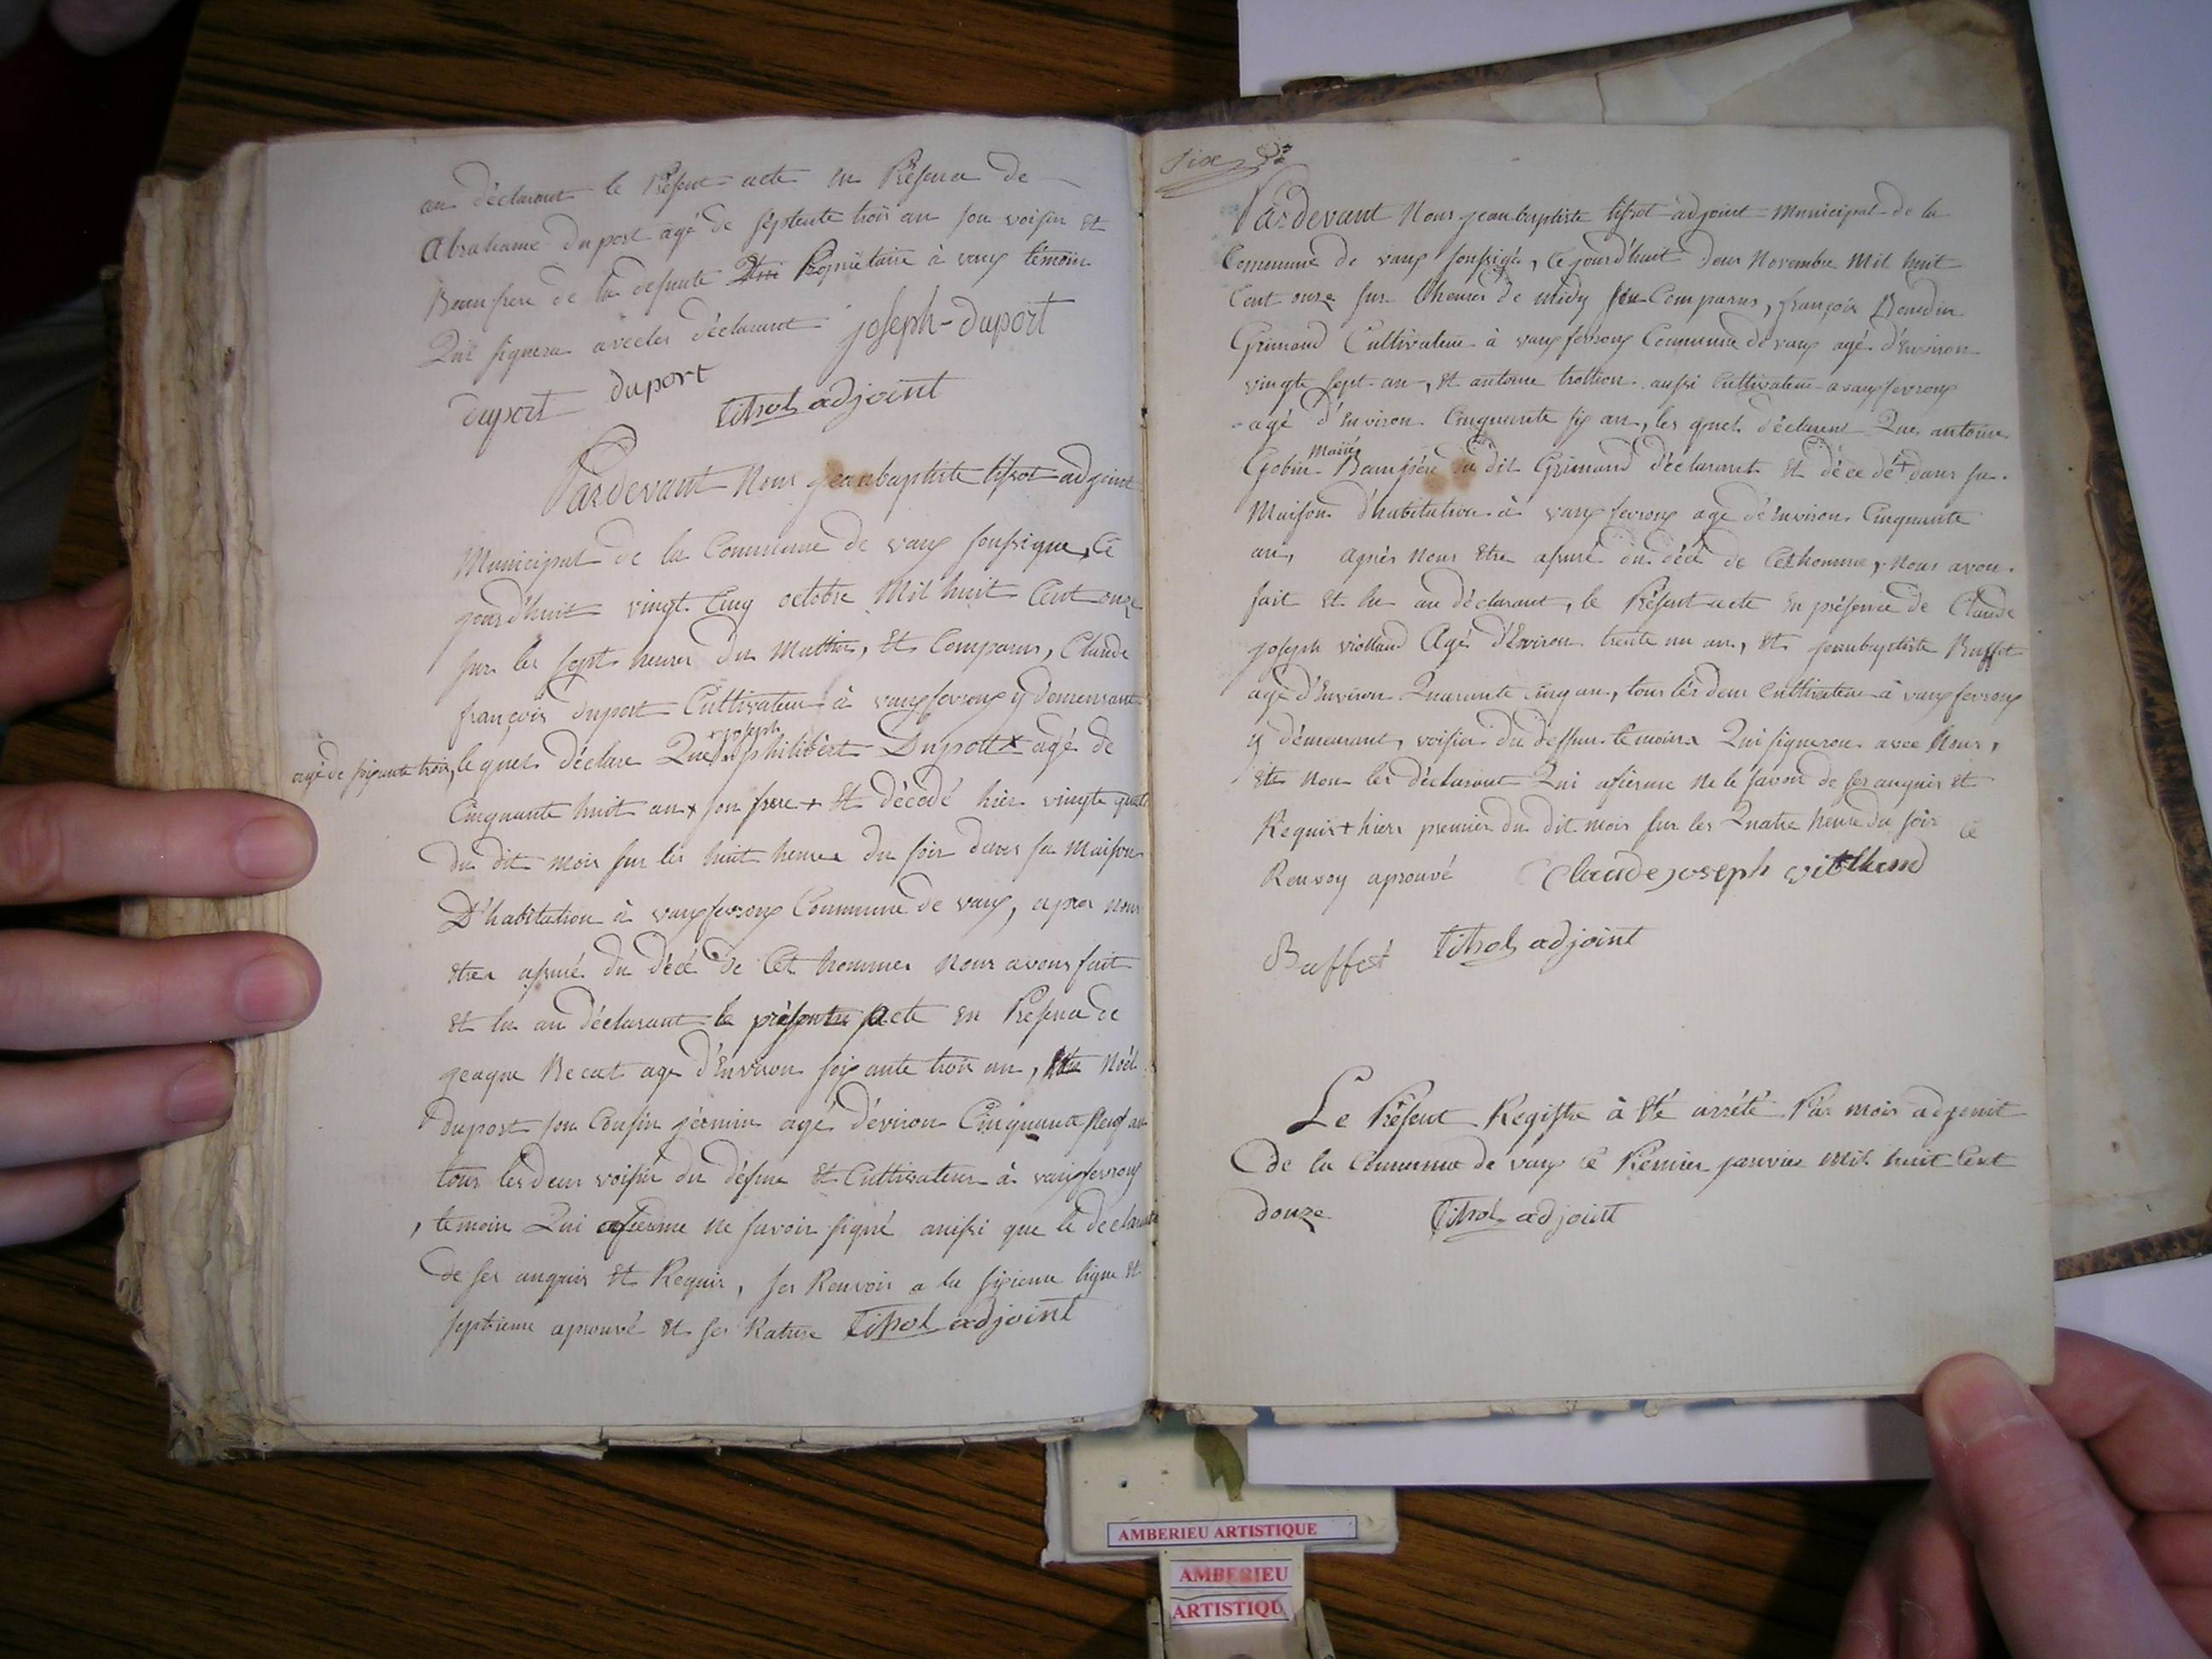 au déclarant le Présent acte en Présence de
Abrahame duport agé de septente trois an son voisin et
Beaufrere de la defunte Propriétaire à vaux témoin
Qui signera avec les déclarant joseph-duport
duport duport
titrol adjoint
Pardevant Nous jeanbaptiste adjoint
Municipal de la Commune de vaux soussigne, Ce
jourd'huit vingt Cinq octobre Mil huit Cent onze
sur les sept heures du Mattin, Et Comparus, Claude
françois duport Cultivateur à vauxfevroux y demeurant
+ joseph
agé de soixante trois, le quel déclare Que philibert Duport x agé de
Cinquante huit an x son frere + Et décédé hier vingte quatre
du dit mois sur les huit heures du soir dans sa Maison
D'habitation à vauxfevroux Commune de vaux, apres nous
etre assuré du décé de Cet homme Nous avons fait
Et lu au déclarant le présente acte en Présence de
geaque Becat age d'Environ soixante trois an, Noël
duport son Cousin germin agé d'éviron Cinquante Neuf an
tous les deux voisin du défunt Et Cultivateur à vauxfevroux
, temoin Qui afierme ne savoir signé ainssi que le declarant
de ses anquis Et Requis, ses Renvois a la sixieme ligne Et
septieme aprouvé Et ses Rature titrol adjoint
Six
Pardevant Nous jeanbaptiste adjoint Municipal de la
Commune de vaux soussigé, Ce jourd'huit deux Novembre Mil huit
Cent onze sur lheures de midy Comparus, françois Benedin
Grimand Cultivateur à vauxfevroux Commune de vaux agé d'Environ
vingte sept an, Et antoine trollion aussi Cultivateur a vauxfevroux
agé d'Environ Cinquante six an, les quels déclarent Que antoine
Marié
Gobin Beaufrere du dit Grimand déclarant Et décedé + dans sa
Maison d'habitation à vauxfevroux agé d'Environ Cinquante
an, après nous Etre assuré du décé de Cet homme, Nous avon
fait Et lu au déclarant, le Présent acte En présence de Claude
joseph violland Agé d'Environ trente un an, Et jeanbaptiste Buffet
agé d'Environ Quarante Cinq an, tous les deux Cultivateur à vauxfevroux
y démeurant, voisin du deffun temoins Qui signeron avec Nous,
Et Non les déclarant Qui afierme ne le savoir de ses anquis Et
Requis + hiers premier du dit mois sur les Quatre heure du soir Ce
Renvoy aprouvé Claude joseph violland
Buffet titrol adjoint
Le Présent Registre à Eté arrété Par mois adjoint
de la Commune de vaux Ce Premier janvier mil huit Cent
douze titrol adjoint
AMBERIEU ARTISTIQUE
AMBERIEU
ARTISTIQU